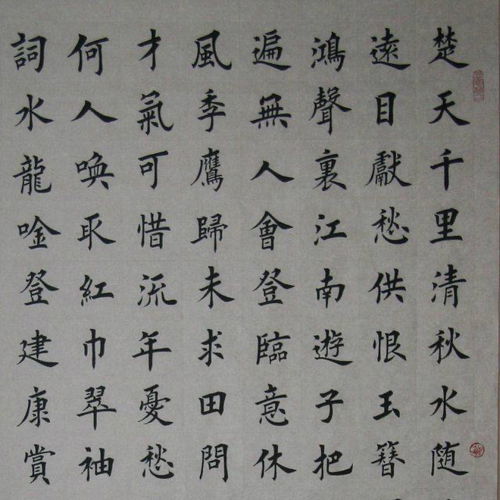 楚天千里清秋水随
遠目獻愁供恨玉簪
鴻聲裏江南遊子把
遍無人會登臨意休
風季鷹歸未求田問
才氣可惜流年憂愁
何人喚取紅巾翠袖
詞水龍唫登建康賞